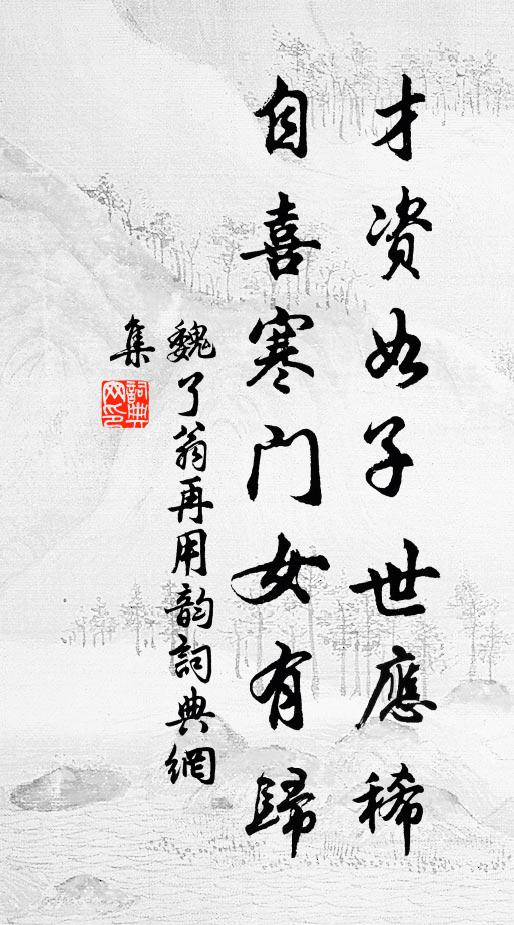 才资如子世應稀
自喜寒门女有歸
魏了翁再用韵詞典網
集
詞典網印